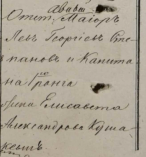 Отст. Маіоръ
Левъ Георгіевъ Сте
пановъ и Капита
на 1го
жена Елисавета
Александрова Куша